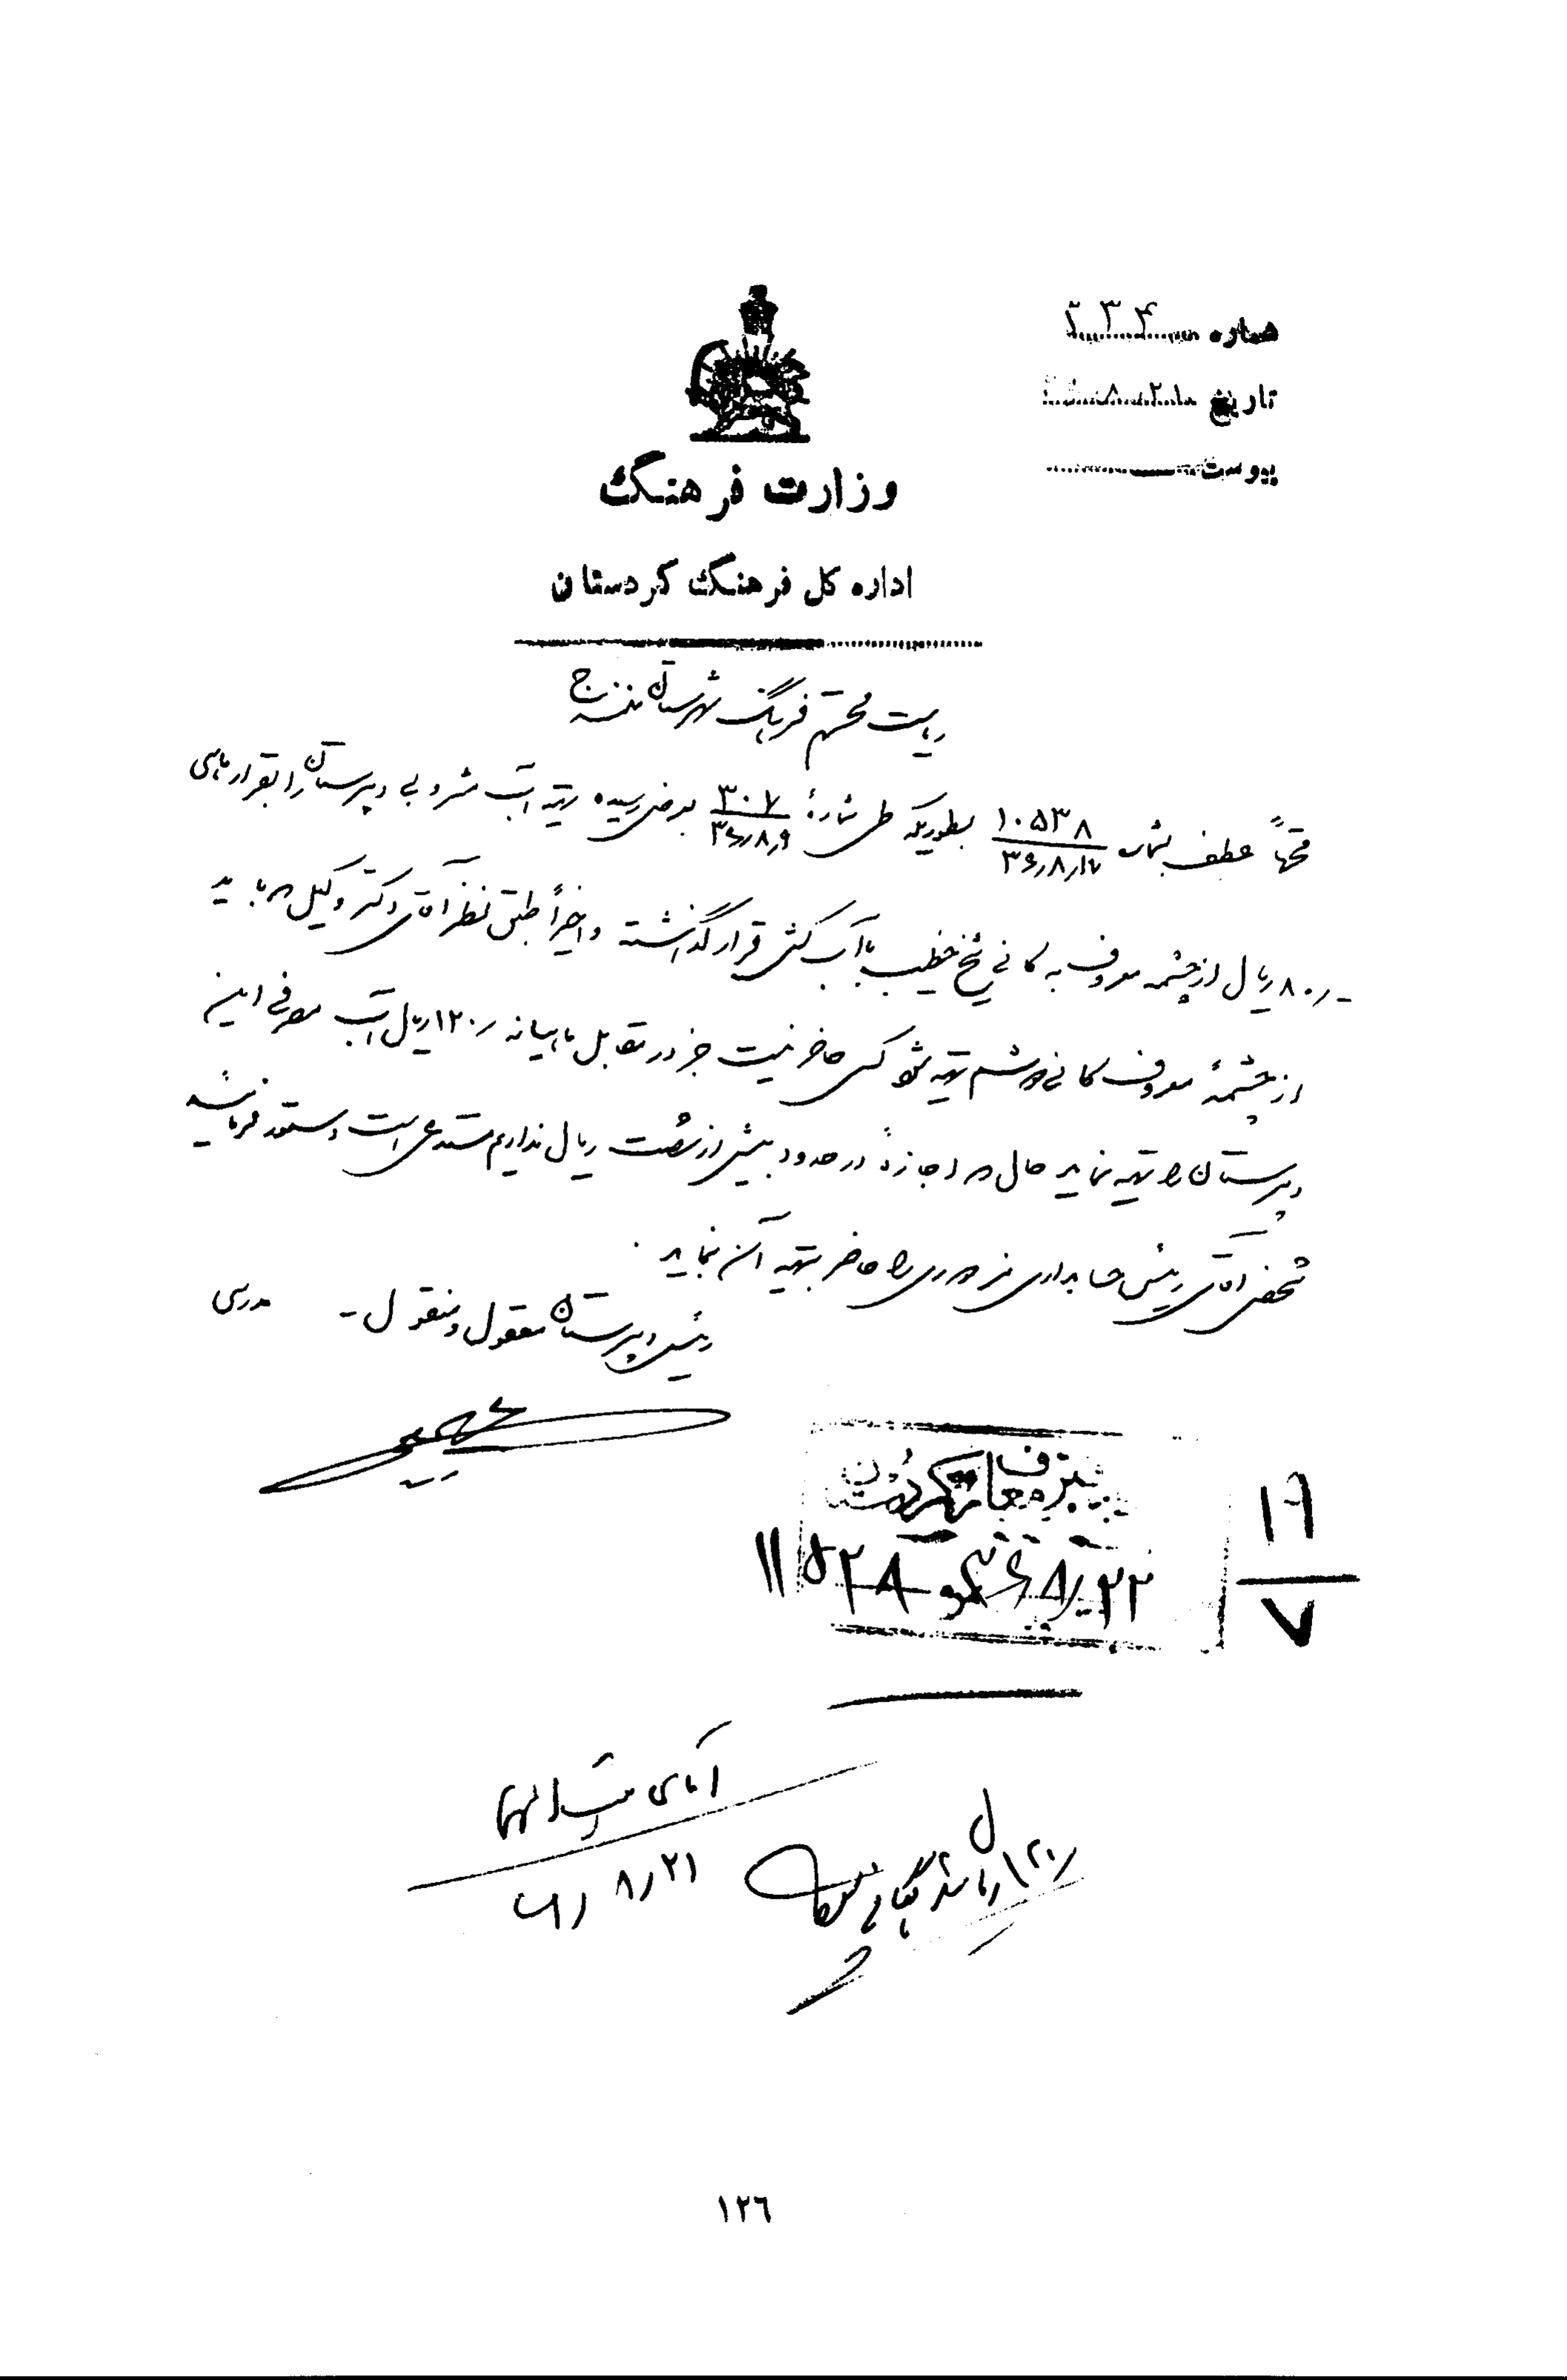 شماره ۳۳۴
تاریخ ۸-۲۱
پیوست
وزارت فرهنگ
اداره کل فرهنگ کردستان
ریاست محترم فرهنگ شهرستان سنندج
محترماً عطف بشماره ۱۰۵۳۸ ۳۶٫۸٫۱۷ بطوریکه طی شمارهٔ ۳۰۷ ۳۶٫۸٫۹ بعرض رسیده تهیه آب مشروبی دبیرستان را بقرار ماهی
۸۰٫- ریال از چشمه معروف به کانی شیخ خطیب با آب کش قرار گذاشته و اخیراً طبق نظر آقای دکتر وکیل که باید
از چشمهٔ معروف کانی تهیه شود کسی حاضر نیست جز در مقابل ماهیانه ۱۲۰٫ ریال آب مصرفی این
دبیرستان را تهیه نماید حال که اجازهٔ در حدود بیش از شصت ریال نداریم مستدعی است دستور فرمائید
شخص آقای رئیس حسابداری را حاضر بتهیه آن نماید.
رئیس دبیرستان معقول و منقول - مدرسی
دفتر معارف کردستان
۲۲٫۸٫۳۶ نمره ۱۱۵۲۸
۱۹
۷
آقای
۱۲۰٫
۸٫۲۱
۱۲٦